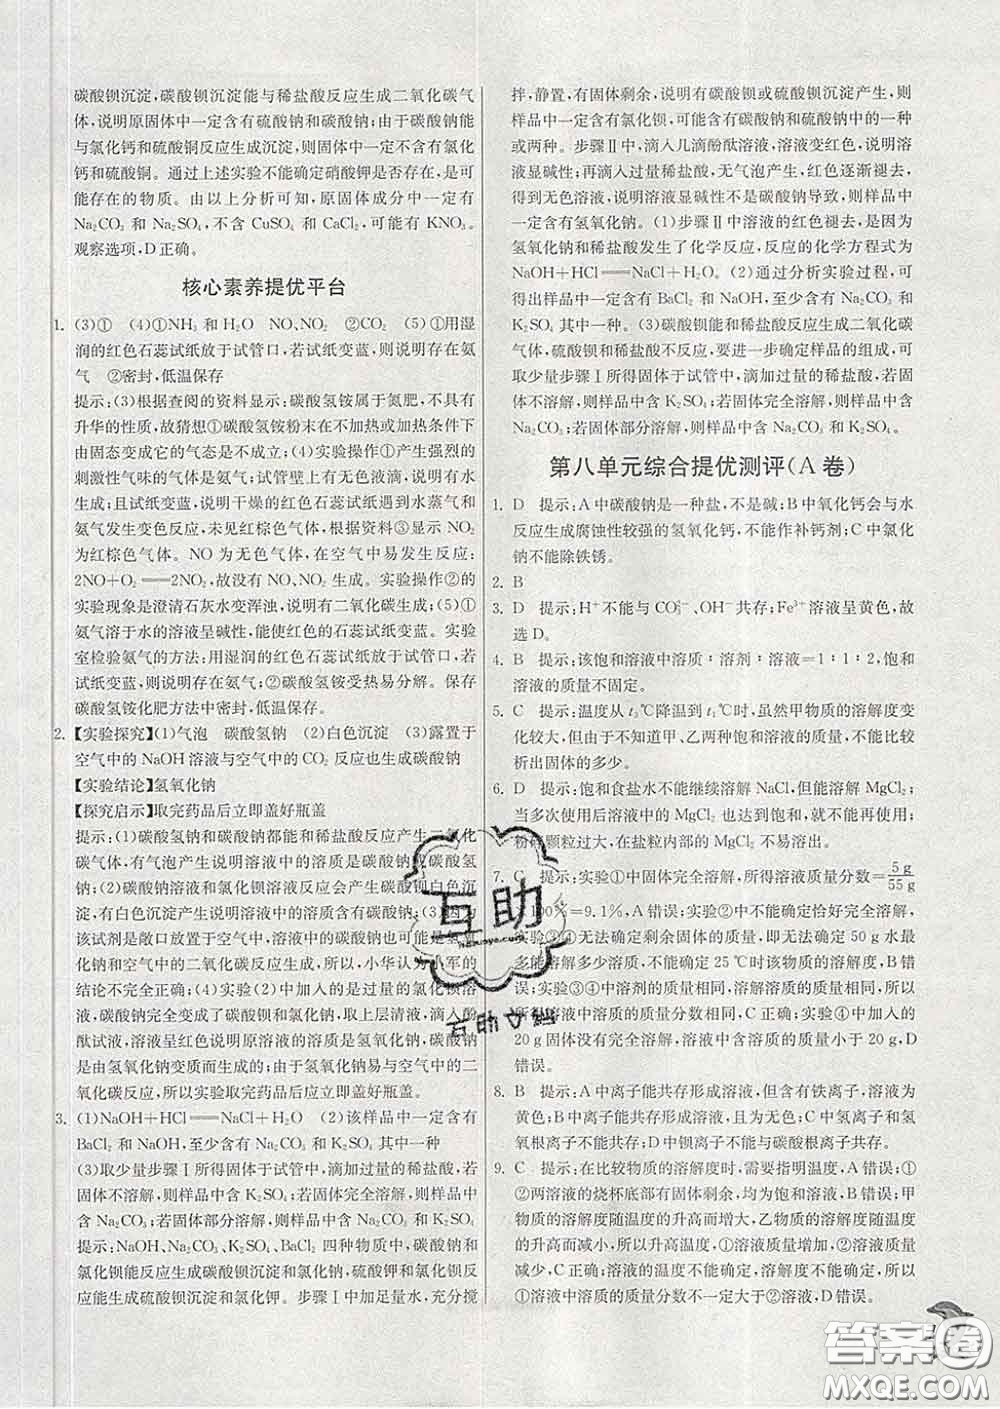 碳酸钡沉淀,碳酸钡沉淀能与稀盐酸反应生成二氧化碳气
体,说明原固体中一定含有硫酸钠和碳酸钠;由于碳酸钠能
与氯化钙和硫酸铜反应生成沉淀,则固体中一定不含有氯化
钙和硫酸铜。通过上述实验不能确定硝酸钾是否存在,是可
能存在的物质。由以上分析可知,原固体成分中一定有
Na₂CO₃ 和 Na₂SO₄,不含 CuSO₄ 和 CaCl₂,可能有 KNO₃。
观察选项,D正确。
核心素养提优平台
1. (3)① (4)①NH₃ 和 H₂O NO、NO₂ ②CO₂ (5)①用湿
润的红色石蕊试纸放于试管口,若试纸变蓝,则说明存在氨
气 ②密封,低温保存
提示:(3)根据查阅的资料显示:碳酸氢铵属于氮肥,不具有
升华的性质,故猜想①碳酸氢铵粉末在不加热或加热条件下
由固态变成它的气态是不成立;(4)实验操作①产生强烈的
刺激性气味的气体是氨气;试管壁上有无色液滴,说明有水
生成;且且,说明干燥的红色石蕊试纸遇到水蒸气和
氨气发生变色反应,未见红棕色气体。根据资料③显示 NO₂
为红棕色气体。NO 为无色气体,在空气中易发生反应:
2NO+O₂══2NO₂,故没有 NO、NO₂ 生成。实验操作②的
实验现象是澄清石灰水变浑浊,说明有二氧化碳生成;(5)①
氨气溶于水的溶液呈碱性,能使红色的石蕊试纸变蓝。实验
室检验氨气的方法:用湿润的红色石蕊试纸放于试管口,若
试纸变蓝,则说明存在氨气;②碳酸氢铵受热易分解。保存
碳酸氢铵化肥方法中密封,低温保存。
2. 【实验探究】(1)气泡 碳酸氢钠 (2)白色沉淀 (3)露置于
空气中的 NaOH 溶液与空气中的 CO₂ 反应也生成碳酸钠
【实验结论】氢氧化钠
【探究启示】取完药品后立即盖好瓶盖
提示:(1)碳酸氢钠和碳酸钠都能和稀盐酸反应产生二氧化
碳气体,有气泡产生说明溶液中的溶质是碳酸钠或碳酸氢
钠;(2)碳酸钠溶液和氯化钡溶液反应会产生碳酸钡白色沉
淀,有白色沉淀产生说明溶液中的溶质含有碳酸钠;(3)因为
该试剂是敞口放置于空气中,溶液中的碳酸钠也可能是氢氧
化钠和空气中的二氧化碳反应生成,所以,小华认为小军的
结论不完全正确;(4)实验(2)中加入的是过量的氯化钡溶
液,碳酸钠完全变成了碳酸钡和氯化钠,取上层清液,滴入酚
酞试液,溶液呈红色说明原溶液的溶质是氢氧化钠,碳酸钠
是由氢氧化钠变质而生成的;由于氢氧化钠易与空气中的二
氧化碳反应,所以实验取完药品后应立即盖好瓶盖。
3. (1)NaOH+HCl══NaCl+H₂O (2)该样品中一定含有
BaCl₂ 和 NaOH,至少含有 Na₂CO₃ 和 K₂SO₄ 其中一种
(3)取少量步骤Ⅰ所得固体于试管中,滴加过量的稀盐酸,若
固体不溶解,则样品中含 K₂SO₄;若固体完全溶解,则样品中
含 Na₂CO₃;若固体部分溶解,则样品中含 Na₂CO₃、K₂SO₄
提示:NaOH、Na₂CO₃、K₂SO₄、BaCl₂ 四种物质中,碳酸钠和
氯化钡能反应生成碳酸钡沉淀和氯化钠,硫酸钾和氯化钡反
应能生成硫酸钡沉淀和氯化钾。步骤Ⅰ中加足量水,充分搅
拌,静置,有固体剩余,说明有碳酸钡或硫酸钡沉淀产生,则
样品中一定有氯化钡,可能含有硫酸钾和碳酸钠中的一种
或两种。步骤Ⅱ中,滴入几滴酚酞溶液,溶液变红色,说明溶
液显碱性;再滴入过量稀盐酸,无气泡产生,红色逐渐褪去,
得到无色溶液,说明溶液显碱性不是碳酸钠导致,则样品中
一定含有氢氧化钠。(1)步骤Ⅱ中溶液的红色褪去,是因为
氢氧化钠和稀盐酸发生了化学反应,反应的化学方程式为
NaOH+HCl══NaCl+H₂O。(2)通过分析实验过程,可
得出样品中一定含有 BaCl₂ 和 NaOH,至少含有 Na₂CO₃ 和
K₂SO₄ 其中一种。(3)碳酸钡能和稀盐酸反应生成二氧化碳
气体,硫酸钡和稀盐酸不反应,要进一步确定样品的组成,可
取少量步骤Ⅰ所得固体于试管中,滴加过量的稀盐酸,若固
体不溶解,则样品中含 K₂SO₄;若固体完全溶解,则样品中含
Na₂CO₃;若固体部分溶解,则样品中含 Na₂CO₃、K₂SO₄。
第八单元综合提优测评(A卷)
1. D 提示:A中碳酸钠是一种盐,不是碱;B中氧化钙会与水
反应生成腐蚀性较强的氢氧化钙,不能作补钙剂;C中氯化
钠不能除铁锈。
2. B
3. D 提示:H⁺不能与CO₃²⁻、OH⁻共存;Fe³⁺溶液呈黄色,故
选D。
4. B 提示:该饱和溶液中溶质∶溶剂∶溶液=1∶1∶2,饱和
溶液的质量不固定。
5. C 提示:温度从 t₃℃降温到 t₁℃时,虽然甲物质的溶解度变
化较大,但由于不知道甲、乙两种饱和溶液的质量,不能比较
析出固体的多少。
6. D 提示:饱和食盐水不能继续溶解 NaCl,但能溶解 MgCl₂;
当多次使用后溶液中的 MgCl₂ 也达到饱和,就不能再溶解;
粉碎颗粒过大,在盐粒内部的 MgCl₂ 不易溶出。
7. C 提示:实验①中固体完全溶解,所得溶液质量分数=5 g/55 g
×100%=9.1%,A错误;实验②中不能确定恰好完全溶解,
实验③④无法确定剩余固体的质量,即无法确定50 g水最
多能溶解多少溶质,不能确定25℃时该物质的溶解度,B错
误;实验③④中溶剂的质量相等,溶解的溶质质量相等,所以
所得溶液中溶质的质量分数相同,C正确;实验④中加入的
20 g固体没有完全溶解,溶液中含溶质的质量小于20 g,D
错误。
8. B 提示:A中离子能共存形成溶液,但含有铁离子,溶液为
黄色;B中离子能共存形成溶液,且为无色;C中氢离子和氢
氧根离子不能共存;D中钡离子与碳酸根离子不能共存。
9. C 提示:在比较物质的溶解度时,需要指明温度,A错误;①
②两溶液的烧杯底部有固体剩余,均为饱和溶液,B错误;甲
物质的溶解度随温度的升高而增大,乙物质的溶解度随温度
的升高而减小,所以升高温度,①溶液质量增加,②溶液质量
减小,C正确;溶液的温度不能确定,溶解度不能确定,所以①
溶液的质量分数不一定大于②溶液,D错误。
互助
答案圈
MXQE.COM